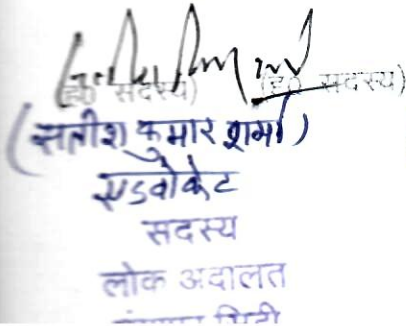 (ह0 सदस्य) (ह0 सदस्य)
(सतीश कुमार शर्मा)
एडवोकेट
सदस्य
लोक अदालत
सिटी